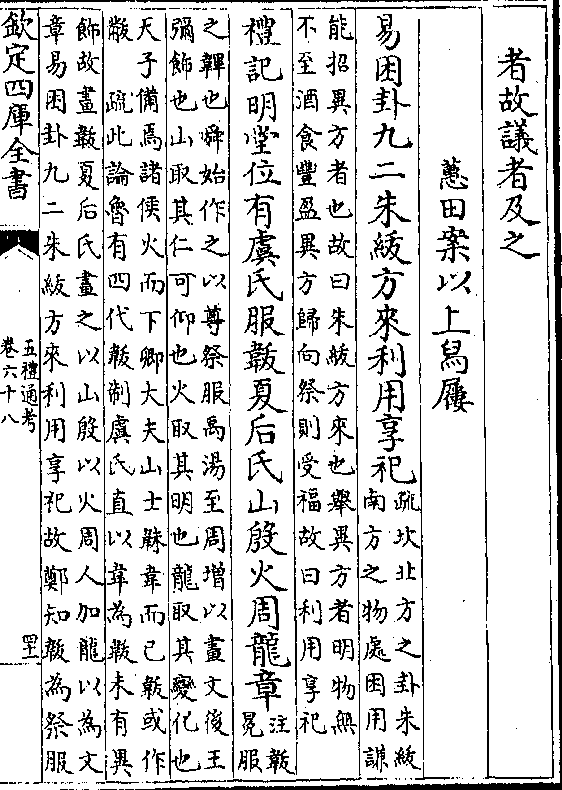 者故議者及之
蕙田案以上舄屨
易困卦九二朱紱方來利用享祀疏坎北方之卦朱紱
南方之物處困用謙
能招異方者也故曰朱紱方來也舉異方者明物無
不至酒食豐盈異方歸向祭則受福故曰利用享祀
禮記明堂位有虞氏服韍夏后氏山殷火周龍章注韍
冕服
之韠也舜始作之以尊祭服禹湯至周增以畫文後王
彌飾也山取其仁可仰也火取其明也龍取其變化也
天子備焉諸侯火而下卿大夫山士韎韋而已韍或作
黻　疏此論魯有四代韍制虞氏直以韋為韍未有異
飾故畫韍夏后氏畫之以山殷以火周人加龍以為文
章易困卦九二朱紱方來利用享祀故鄭知韍為祭服
欽定四庫全書
五禮通考
卷六十八